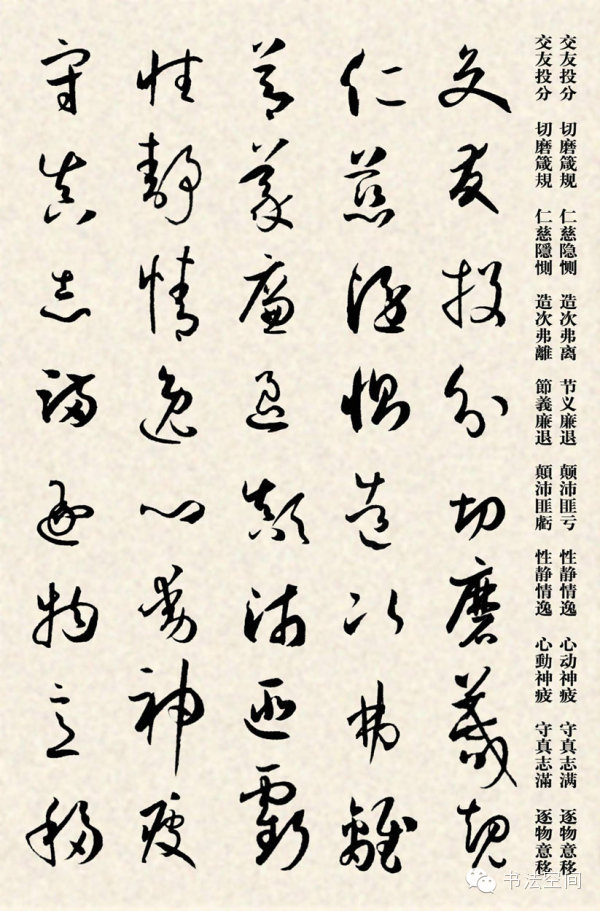 交友投分 切磨箴规 仁慈隐恻 造次弗离 节义廉退 颠沛匪亏 性静情逸 心动神疲 守真志满 逐物意移
交友投分 切磨箴規 仁慈隱惻 造次弗離 節義廉退 顛沛匪虧 性静情逸 心動神疲 守真志滿 逐物意移
交友投分切磨箴規
仁慈隱惻造次弗離
節義廉退顛沛匪虧
性静情逸心動神疲
守真志滿逐物意移
书法空间